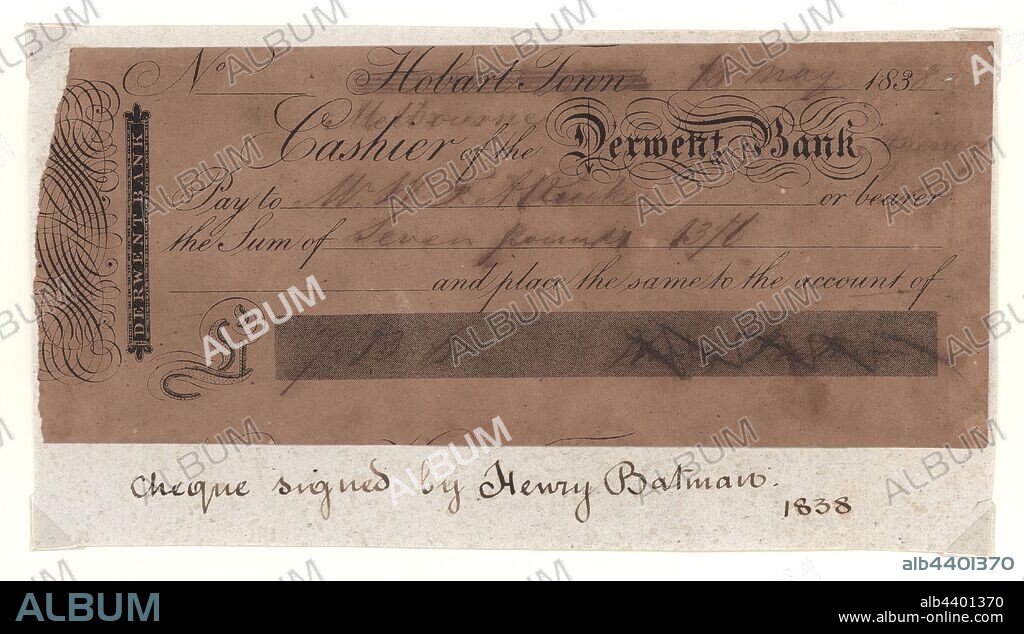 No Hobart Town May 1838
Melbourne
Cashier of the Derwent Bank
Pay to Mr. or bearer
the Sum of Seven pounds 13/6
and place the same to the account of
£ 7. 13. 6
DERWENT BANK
cheque signed by Henry Batman.
1838
alb4401370
ALBUM
alb4401370
www.album-online.com